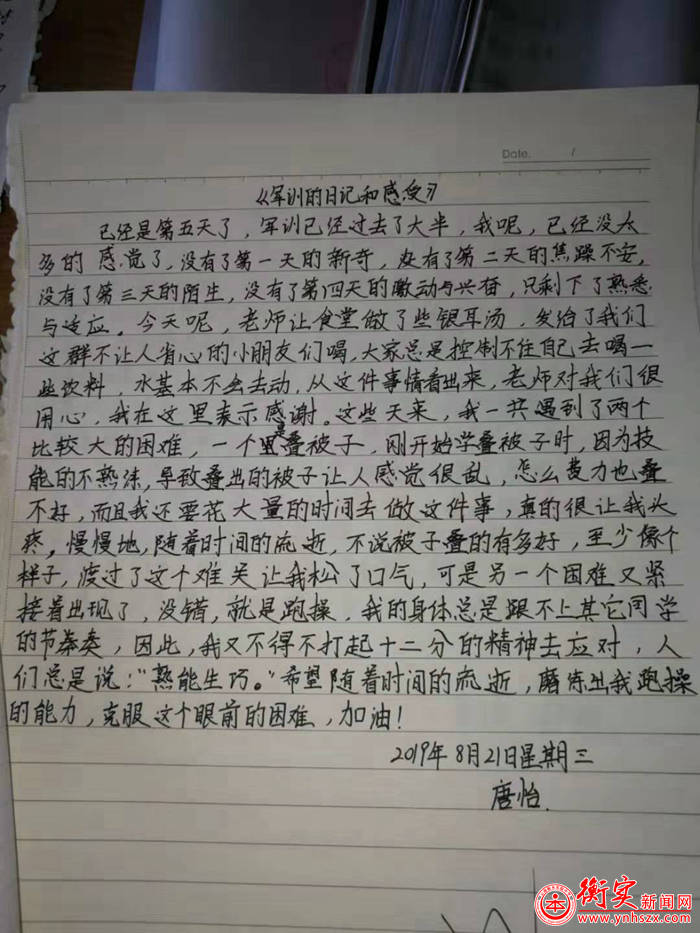 Date. /
《军训的日记和感受》
已经是第五天了，军训已经过去了大半，我呢，已经没太
多的感觉了，没有了第一天的新奇，没有了第二天的焦躁不安，
没有了第三天的陌生，没有了第四天的激动与兴奋，只剩下了熟悉
与适应。今天呢，老师让食堂做了些银耳汤，发给了我们
这群不让人省心的小朋友们喝，大家总是控制不住自己去喝一
些饮料，水基本不会去动，从这件事情看出来，老师对我们很
用心，我在这里表示感谢。这些天来，我一共遇到了两个
比较大的困难，一个是叠被子，刚开始学叠被子时，因为技
能的不熟练，导致叠出的被子让人感觉很乱，怎么费力也叠
不好，而且我还要花大量的时间去做这件事，真的很让我头
疼，慢慢地，随着时间的流逝，不说被子叠的有多好，至少像个
样子，渡过了这个难关让我松了口气，可是另一个困难又紧
接着出现了，没错，就是跑操，我的身体总是跟不上其它同学
的节奏，因此，我又不得不打起十二分的精神去应对，人
们总是说："熟能生巧。"希望随着时间的流逝，磨练出我跑操
的能力，克服这个眼前的困难，加油！
2019年8月21日星期三
唐怡
衡实新闻网
www.ynhszx.com